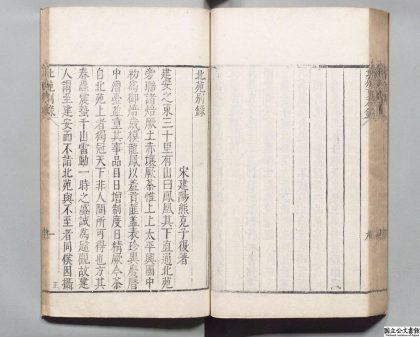 北苑別錄
宋建陽熊克子復著
建安之東三十里有山曰鳳凰其下直通北苑
旁聯諸焙厥土赤壤厥茶惟上上太平興國中
初為御焙歲模龍鳳以羞貢篚益表珍異慶曆
中漕臺益重其事品目日增制度日精厥今茶
自北苑上者獨冠天下非人間所可得也方其
春蟲震蟄千山雷動一時之盛誠為偉觀故建
人謂至建安而不詣北苑與不至者同僕因攝
北苑別錄
國立公文書館